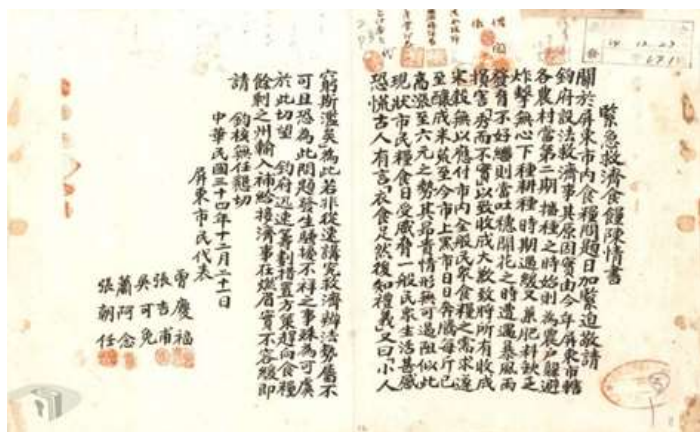 緊急救濟食糧陳情書
關於屏東市內食糧問題日加緊迫敬請
鈞府設法救濟事其原因實由今年屏東市轄
各農村當第二期播種之時始則為農戶躲避
炸擊無心下種耕種時期過緩又兼肥料缺乏
發育不好繼則當吐穗開花之時遭遇暴風雨
損害秀而不實以致收成大歉致將所有收成
米穀無以應付市內全般民眾食糧之需求遂
至釀成米荒至今市上黑市日日奔騰每斤已
高漲至六元之勢其昂貴情形無可遏阻似此
現狀市民糧食日受威脅一般民眾生活甚感
恐慌古人有言「衣食足然後知禮義」又曰「小人
窮斯濫矣」為此若非從速講究救濟辦法勢屬不
可且恐為此問題發生騷擾不祥之事殊為可虞
於此切望　鈞府迅速籌劃措置方策趕向食糧
餘剩之州輸入補給接濟事在燃眉實不容緩即
請　鈞核無任懇切
中華民國三十四年十二月二十一日
屏東市民代表
曾慶福
張吉甫
吳可免
蕭阿念
張朝任